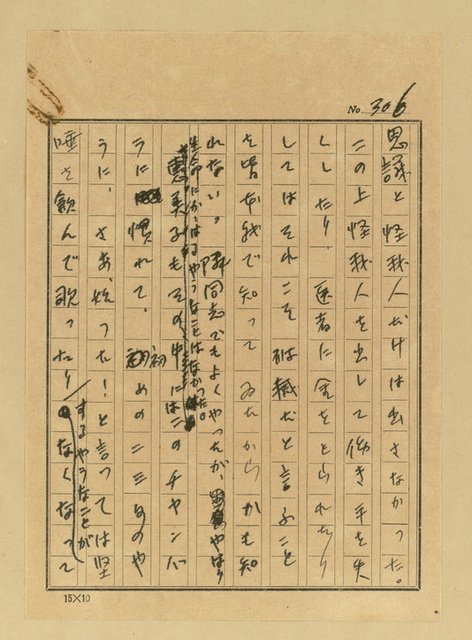 No. 306
思議と怪我人だけは出さなかった。
この上怪我人を出して働き手を失
くしたり、医者に金をとられたり
してはそれこそ破滅だと言ふこと
を皆本能で知ってゐたからかも知
れない。隣同志でもよくやったが、やはり
生命にかゝはるやうなことはなかった。
恵美子もその中にはこのチャンバ
ラに慣れて、初めの二三日のや
うに、さあ、始った!と言っては堅
唾を飲んで ったり
するやうなことが
なくなって
15×10